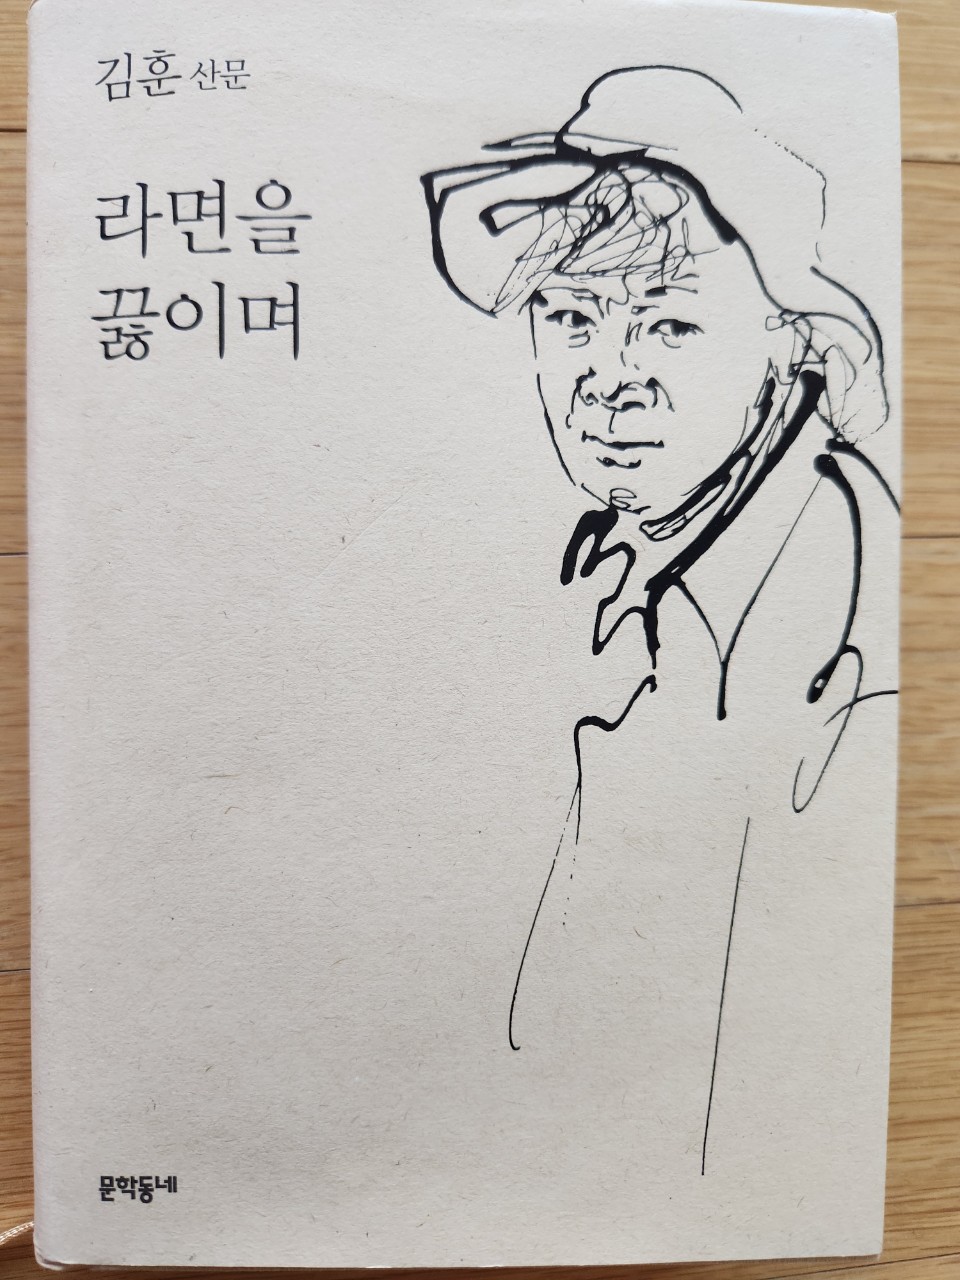 김훈 산문
라면을
끓이며
문학동네